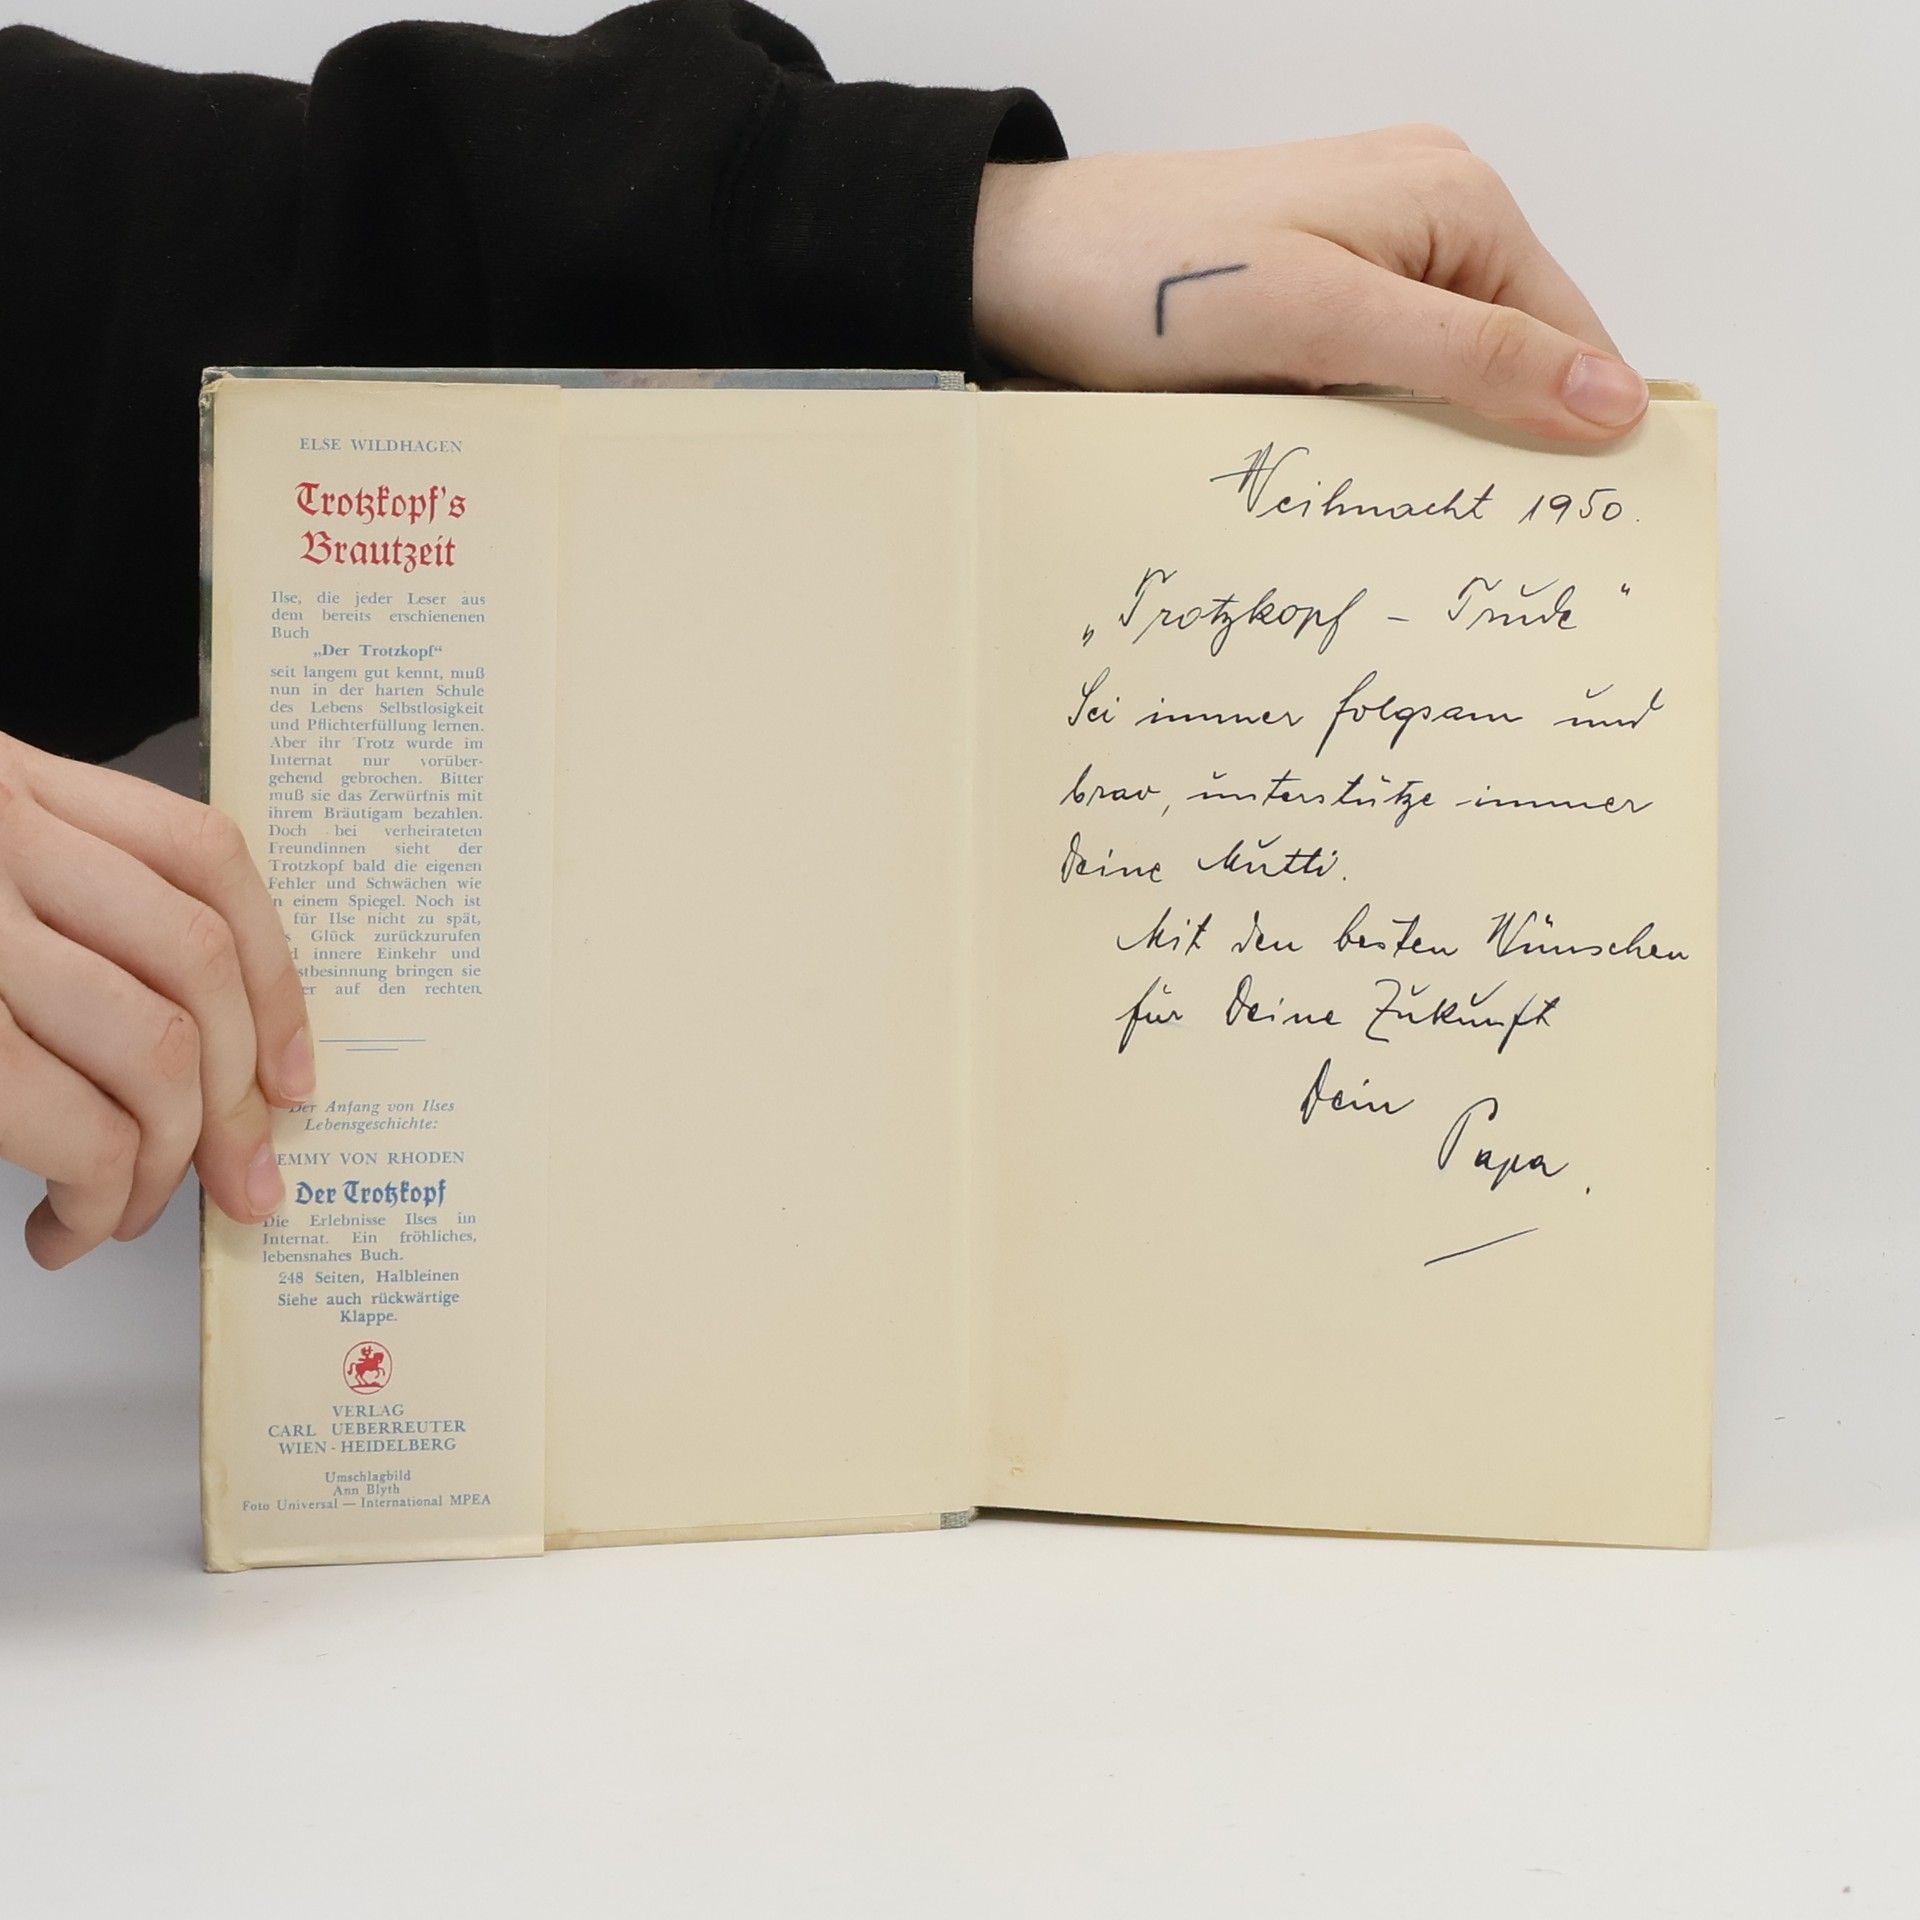 ELSE WILDHAGEN
Trotzkopf's
Brautzeit
Ilse, die jeder Leser aus
dem bereits erschienenen
Buch
„Der Trotzkopf“
seit langem gut kennt, muß
nun in der harten Schule
des Lebens Selbstlosigkeit
und Pflichterfüllung lernen.
Aber ihr Trotz wurde im
Internat nur vorüber-
gehend gebrochen. Bitter
muß sie das Zerwürfnis mit
ihrem Bräutigam bezahlen.
Doch bei verheirateten
Freundinnen sieht der
Trotzkopf bald die eigenen
Fehler und Schwächen wie
n einem Spiegel. Noch ist
für Ilse nicht zu spät,
s Glück zurückzurufen
d innere Einkehr und
stbesinnung bringen sie
er auf den rechten
Der Anfang von Ilses
Lebensgeschichte:
EMMY VON RHODEN
Der Trotzkopf
Die Erlebnisse Ilses im
Internat. Ein fröhliches,
lebensnahes Buch.
248 Seiten, Halbleinen
Siehe auch rückwärtige
Klappe.
VERLAG
CARL UEBERREUTER
WIEN - HEIDELBERG
Umschlagbild
Ann Blyth
Foto Universal — International MPEA
Weihnacht 1950.
„Trotzkopf – Trude“
Sei immer folgsam und
brav, unterstütze immer
Deine Mutti.
Mit den besten Wünschen
für Deine Zukunft
Dein
Papa.